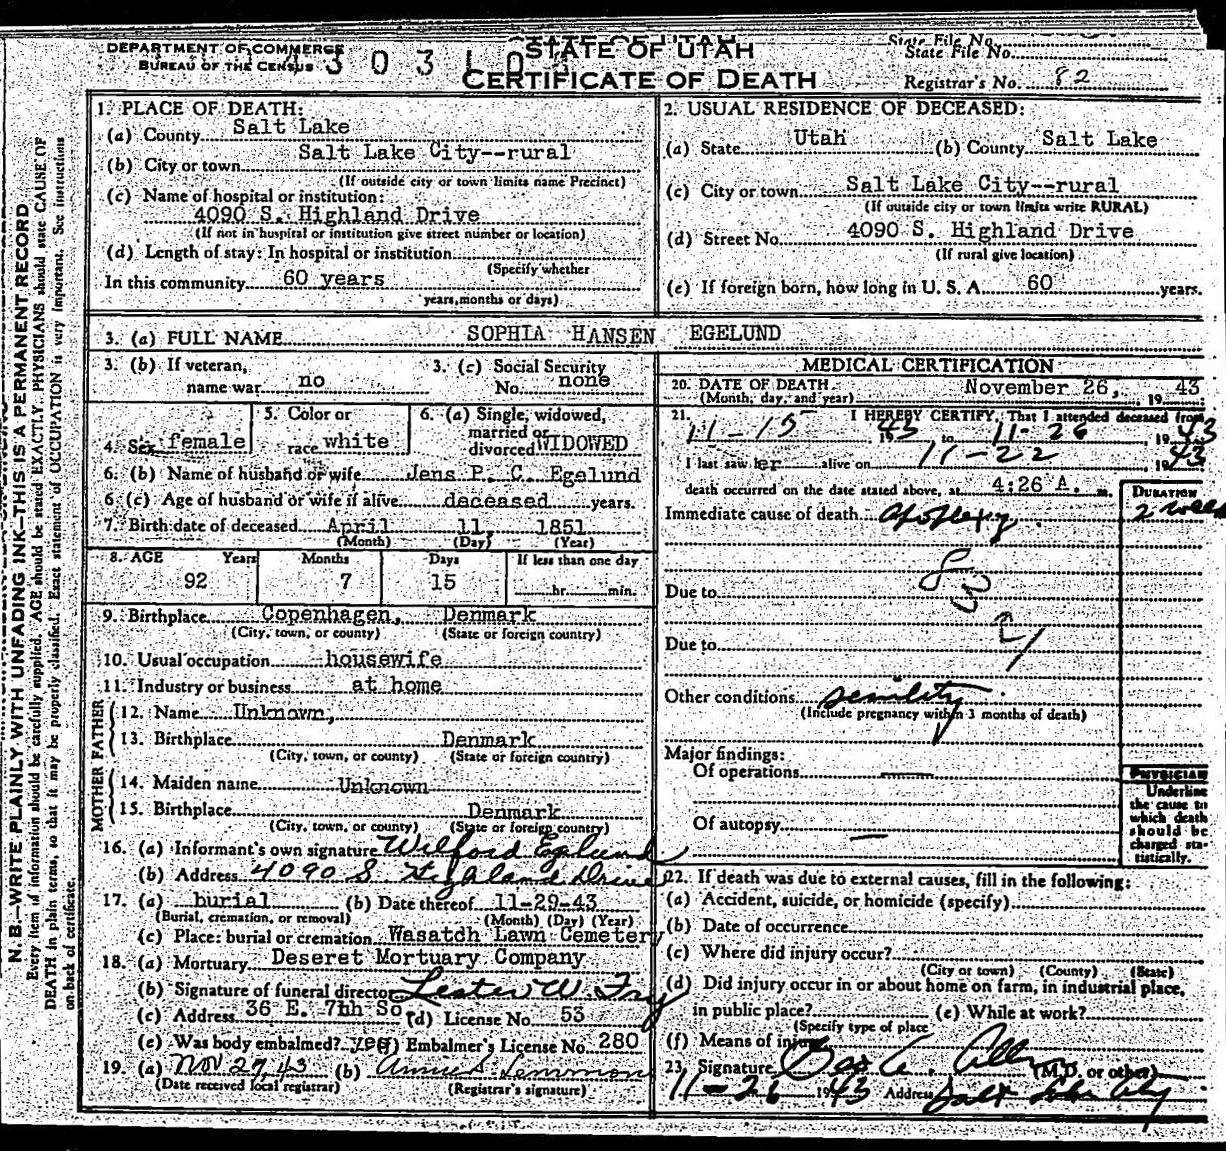 DEPARTMENT OF COMMERCE
BUREAU OF THE CENSUS
STATE OF UTAH
CERTIFICATE OF DEATH
State File No.
Registrar's No. 82
N. B.—WRITE PLAINLY WITH UNFADING INK—THIS IS A PERMANENT RECORD
Every item of information should be carefully supplied. AGE should be stated EXACTLY. PHYSICIANS should state CAUSE OF
DEATH in plain terms, so that it may be properly classified. Exact statement of OCCUPATION is very important. See instructions
on back of certificate.
1. PLACE OF DEATH:
(a) County Salt Lake
(b) City or town Salt Lake City--rural
(If outside city or town limits name Precinct)
(c) Name of hospital or institution:
4090 S. Highland Drive
(If not in hospital or institution give street number or location)
(d) Length of stay: In hospital or institution
(Specify whether
In this community 60 years
years, months or days)
2. USUAL RESIDENCE OF DECEASED:
(a) State Utah (b) County Salt Lake
(c) City or town Salt Lake City--rural
(If outside city or town limits write RURAL)
(d) Street No. 4090 S. Highland Drive
(If rural give location)
(e) If foreign born, how long in U. S. A. 60 years.
3. (a) FULL NAME SOPHIA HANSEN EGELUND
3. (b) If veteran, name war no
3. (c) Social Security No. none
4. Sex female
5. Color or race white
6. (a) Single, widowed, married or divorced WIDOWED
6. (b) Name of husband or wife Jens P. C. Egelund
6 (c) Age of husband or wife if alive deceased years.
7. Birth date of deceased April 11, 1851
(Month) (Day) (Year)
8. AGE Years Months Days If less than one day
92 7 15 hr. min.
9. Birthplace Copenhagen, Denmark
(City, town, or county) (State or foreign country)
10. Usual occupation housewife
11. Industry or business at home
FATHER
12. Name Unknown,
13. Birthplace Denmark
(City, town, or county) (State or foreign country)
MOTHER
14. Maiden name Unknown
15. Birthplace Denmark
(City, town, or county) (State or foreign country)
16. (a) Informant's own signature Wilford Eglund
(b) Address 4090 S Highland Drive
17. (a) burial (b) Date thereof 11-29-43
(Burial, cremation, or removal) (Month) (Day) (Year)
(c) Place: burial or cremation Wasatdh Lawn Cemetery
18. (a) Mortuary Deseret Mortuary Company
(b) Signature of funeral director Lester W. Fry
(c) Address 36 E. 7hh So (d) License No. 53
(e) Was body embalmed? yes (f) Embalmer's License No. 280
19. (a) NOV 27 43 (b) Annie S. Lemmon
(Date received local registrar) (Registrar's signature)
MEDICAL CERTIFICATION
20. DATE OF DEATH November 26, 19 43
(Month, day, and year)
21. I HEREBY CERTIFY, That I attended deceased from
11-15 1943 to 11-26 1943
I last saw her alive on 11-22 1943
death occurred on the date stated above, at 4:26 A. m.
Immediate cause of death apoplexy
DURATION
2 weeks
Due to
Due to
83
Other conditions senility
(Include pregnancy within 3 months of death)
Major findings:
Of operations —
Of autopsy —
PHYSICIAN
Underline
the cause to
which death
should be
charged sta-
tistically.
22. If death was due to external causes, fill in the following:
(a) Accident, suicide, or homicide (specify)
(b) Date of occurrence
(c) Where did injury occur?
(City or town) (County) (State)
(d) Did injury occur in or about home on farm, in industrial place,
in public place? (e) While at work?
(Specify type of place
(f) Means of injury
23. Signature (M.D. or other)
11-26 1943 Address Salt Lake City